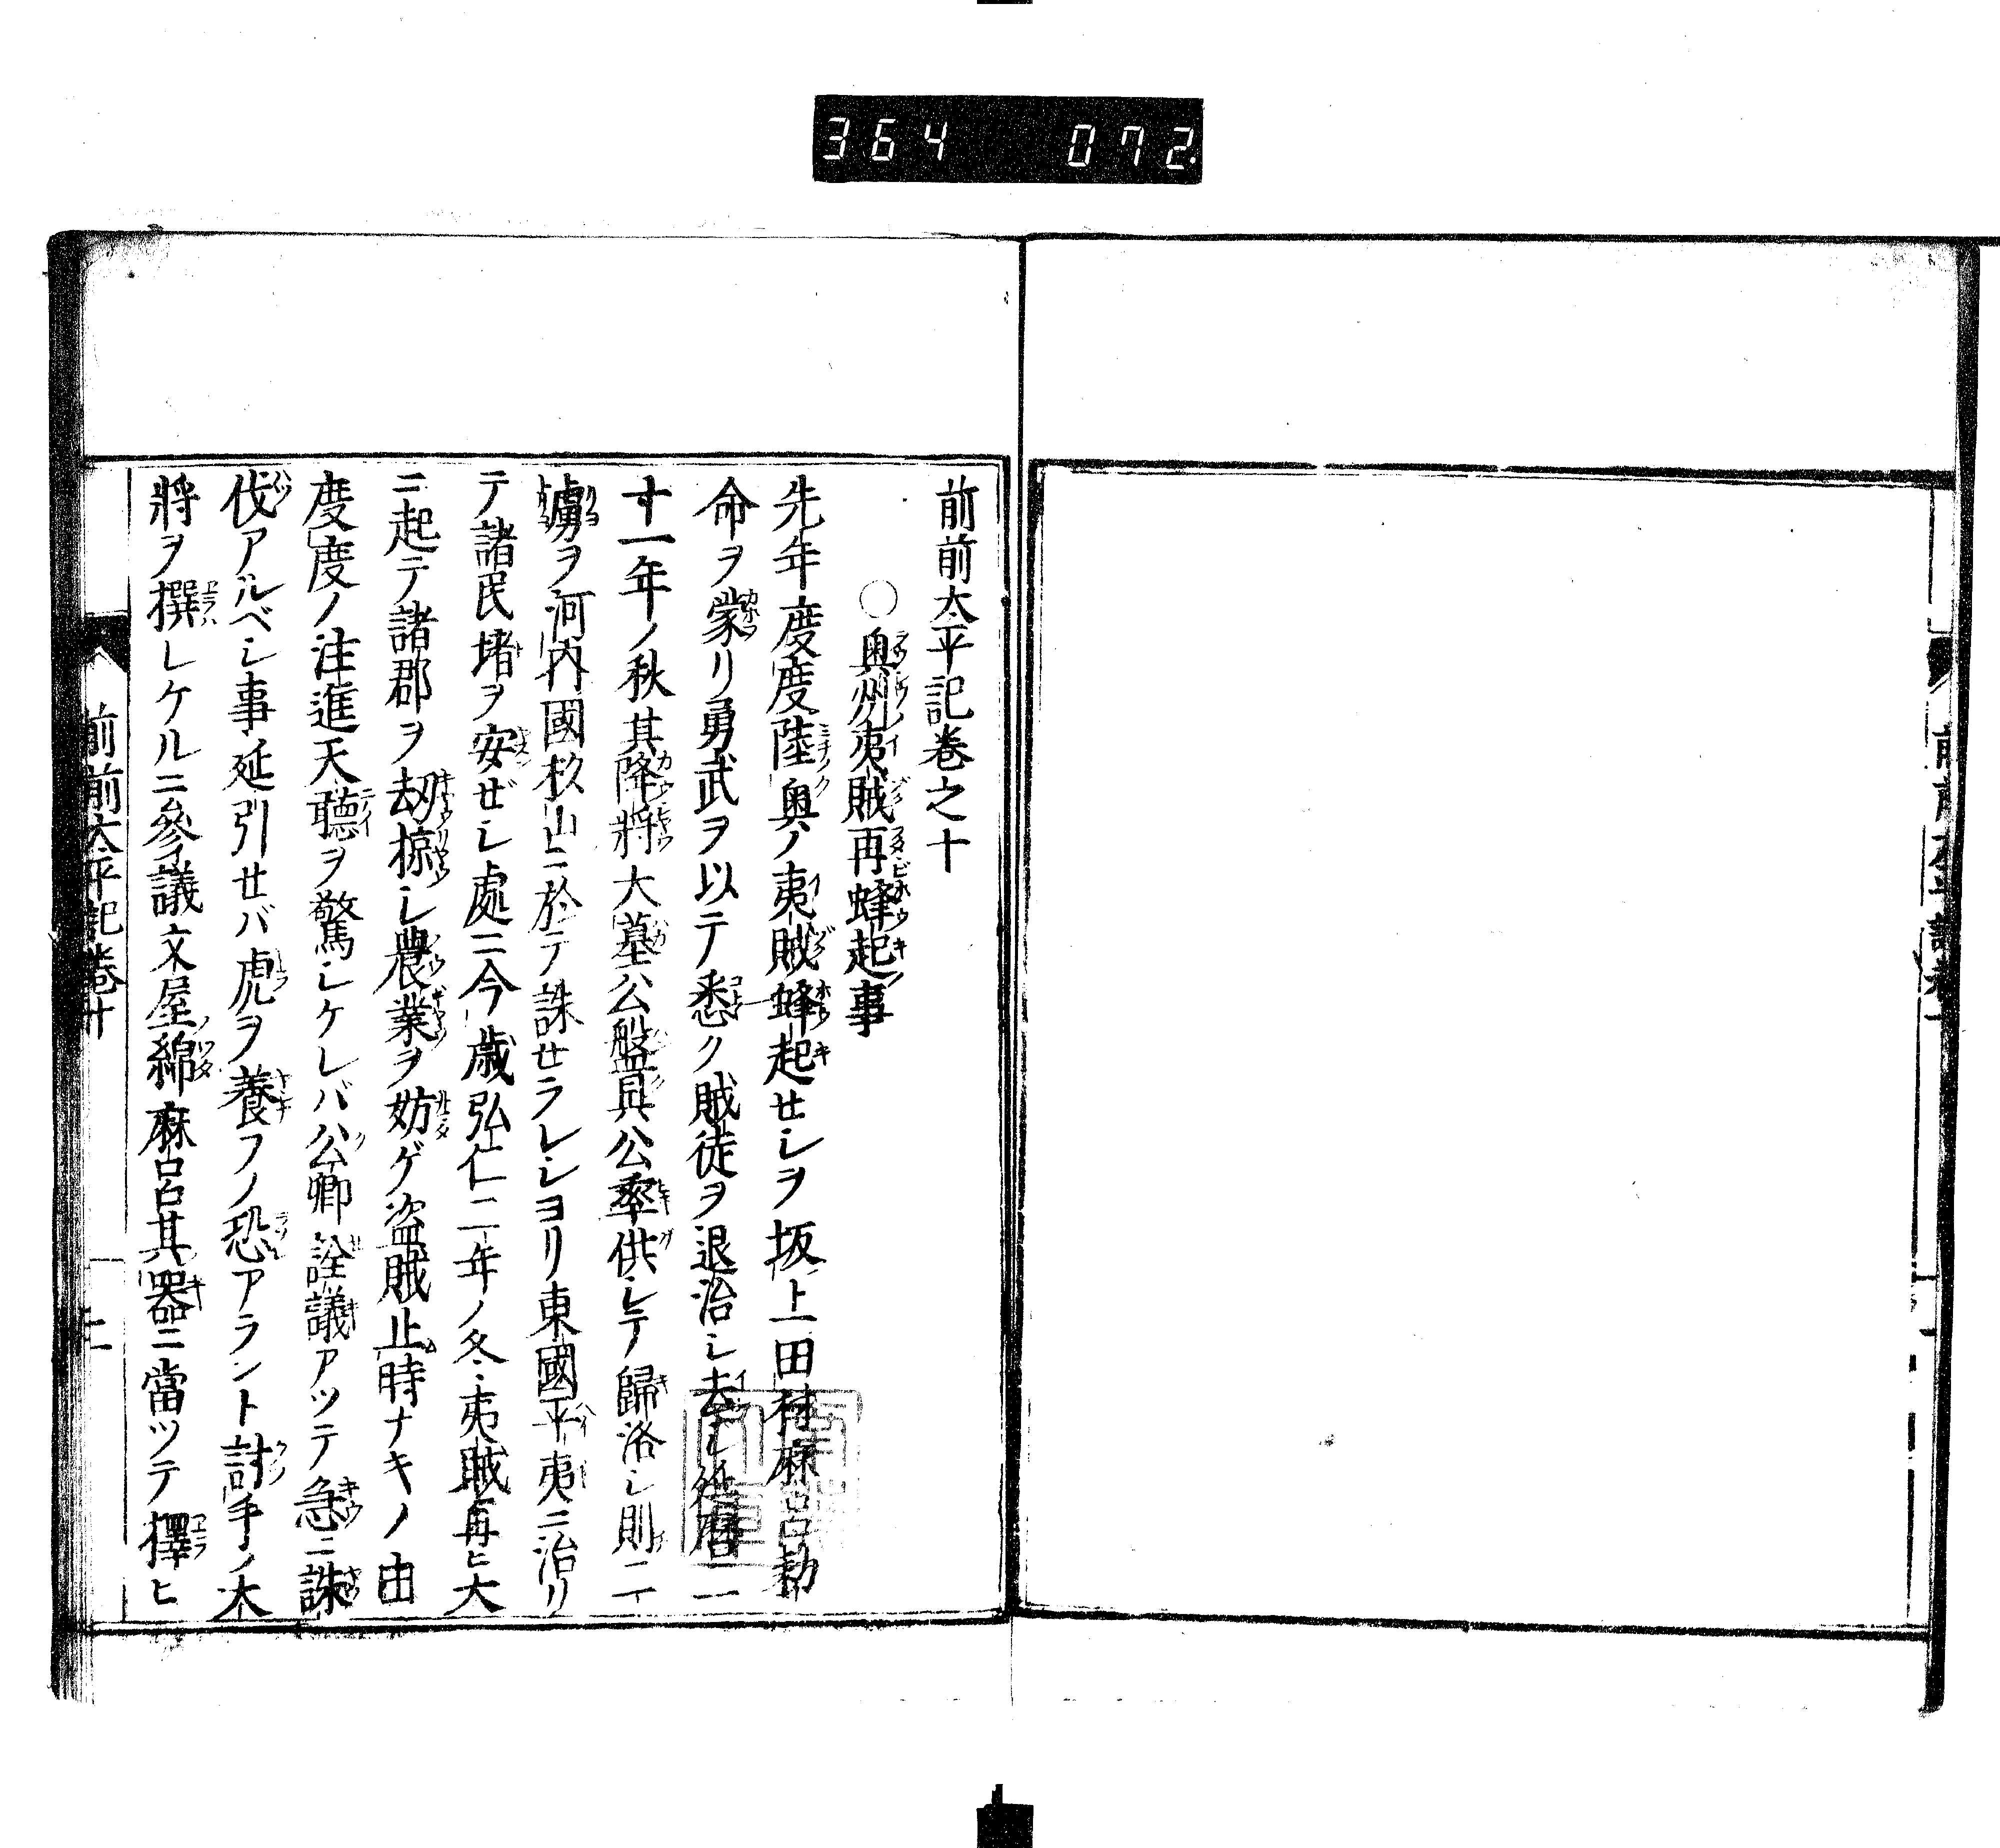 364 072
前前太平記巻之十
○奥州夷賊再蜂起事
先年度度陸奥ノ夷賊蜂起せシヲ坂上田村麻呂勅
命ヲ蒙リ勇武ヲ以テ悉ク賊徒ヲ退治シ去シ延暦二
十一年ノ秋其降将大墓公盤具公率供シテ帰洛シ則二
虜ヲ河内國杦山ニ於テ誅せラレショリ東國平夷ニ治リ
テ諸民堵ヲ安ぜシ處ニ今歳弘仁二年ノ冬夷賊再ヒ大
ニ起テ諸郡ヲ劫掠シ農業ヲ妨ゲ盗賊止時ナキノ由
度度ノ注進天聴ヲ驚シケレバ公卿詮議アツテ急ニ誅
伐アルベシ事延引せバ虎ヲ養フノ恐アラント討手ノ大
將ヲ撰レケルニ參議文屋綿麻呂其器ニ當ツテ擇ヒ
前前太平記巻十